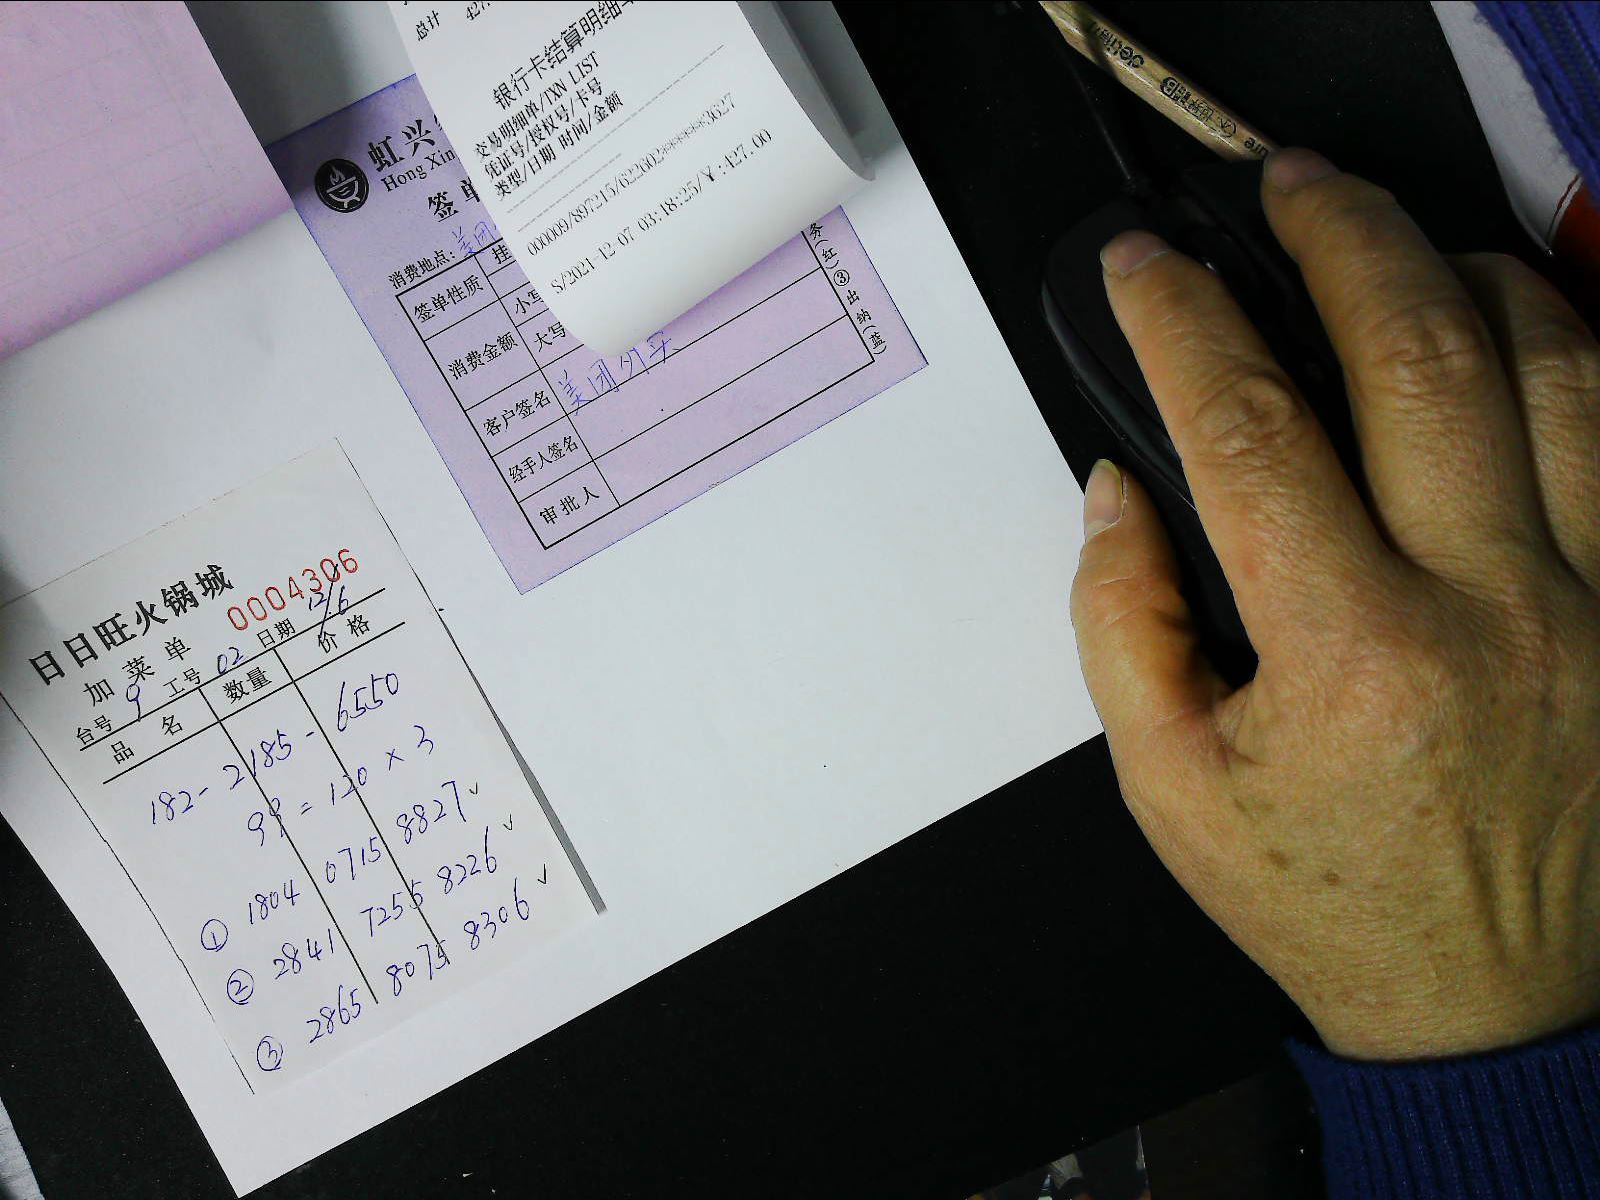 总计 427.
银行卡结算明细单
交易明细单/TXN LIST
凭证号/授权号/卡号
类型/日期 时间/金额
000009/897215/622602******3627
S/2021-12-07 03:18:25/￥:427.00
虹兴
Hong Xin
签单
消费地点: 美团
签单性质 挂
消费金额 小写
大写
客户签名 美团外卖
经手人签名
审批人
务(红)③出纳(蓝)
日日旺火锅城
0004306
加菜单
台号 9 工号 02 日期 12/6
品名 数量 价格
182-2185-6550
99=120×3
① 1804 0715 8827 ✓
② 2841 7255 8226 ✓
③ 2865 8075 8306 ✓